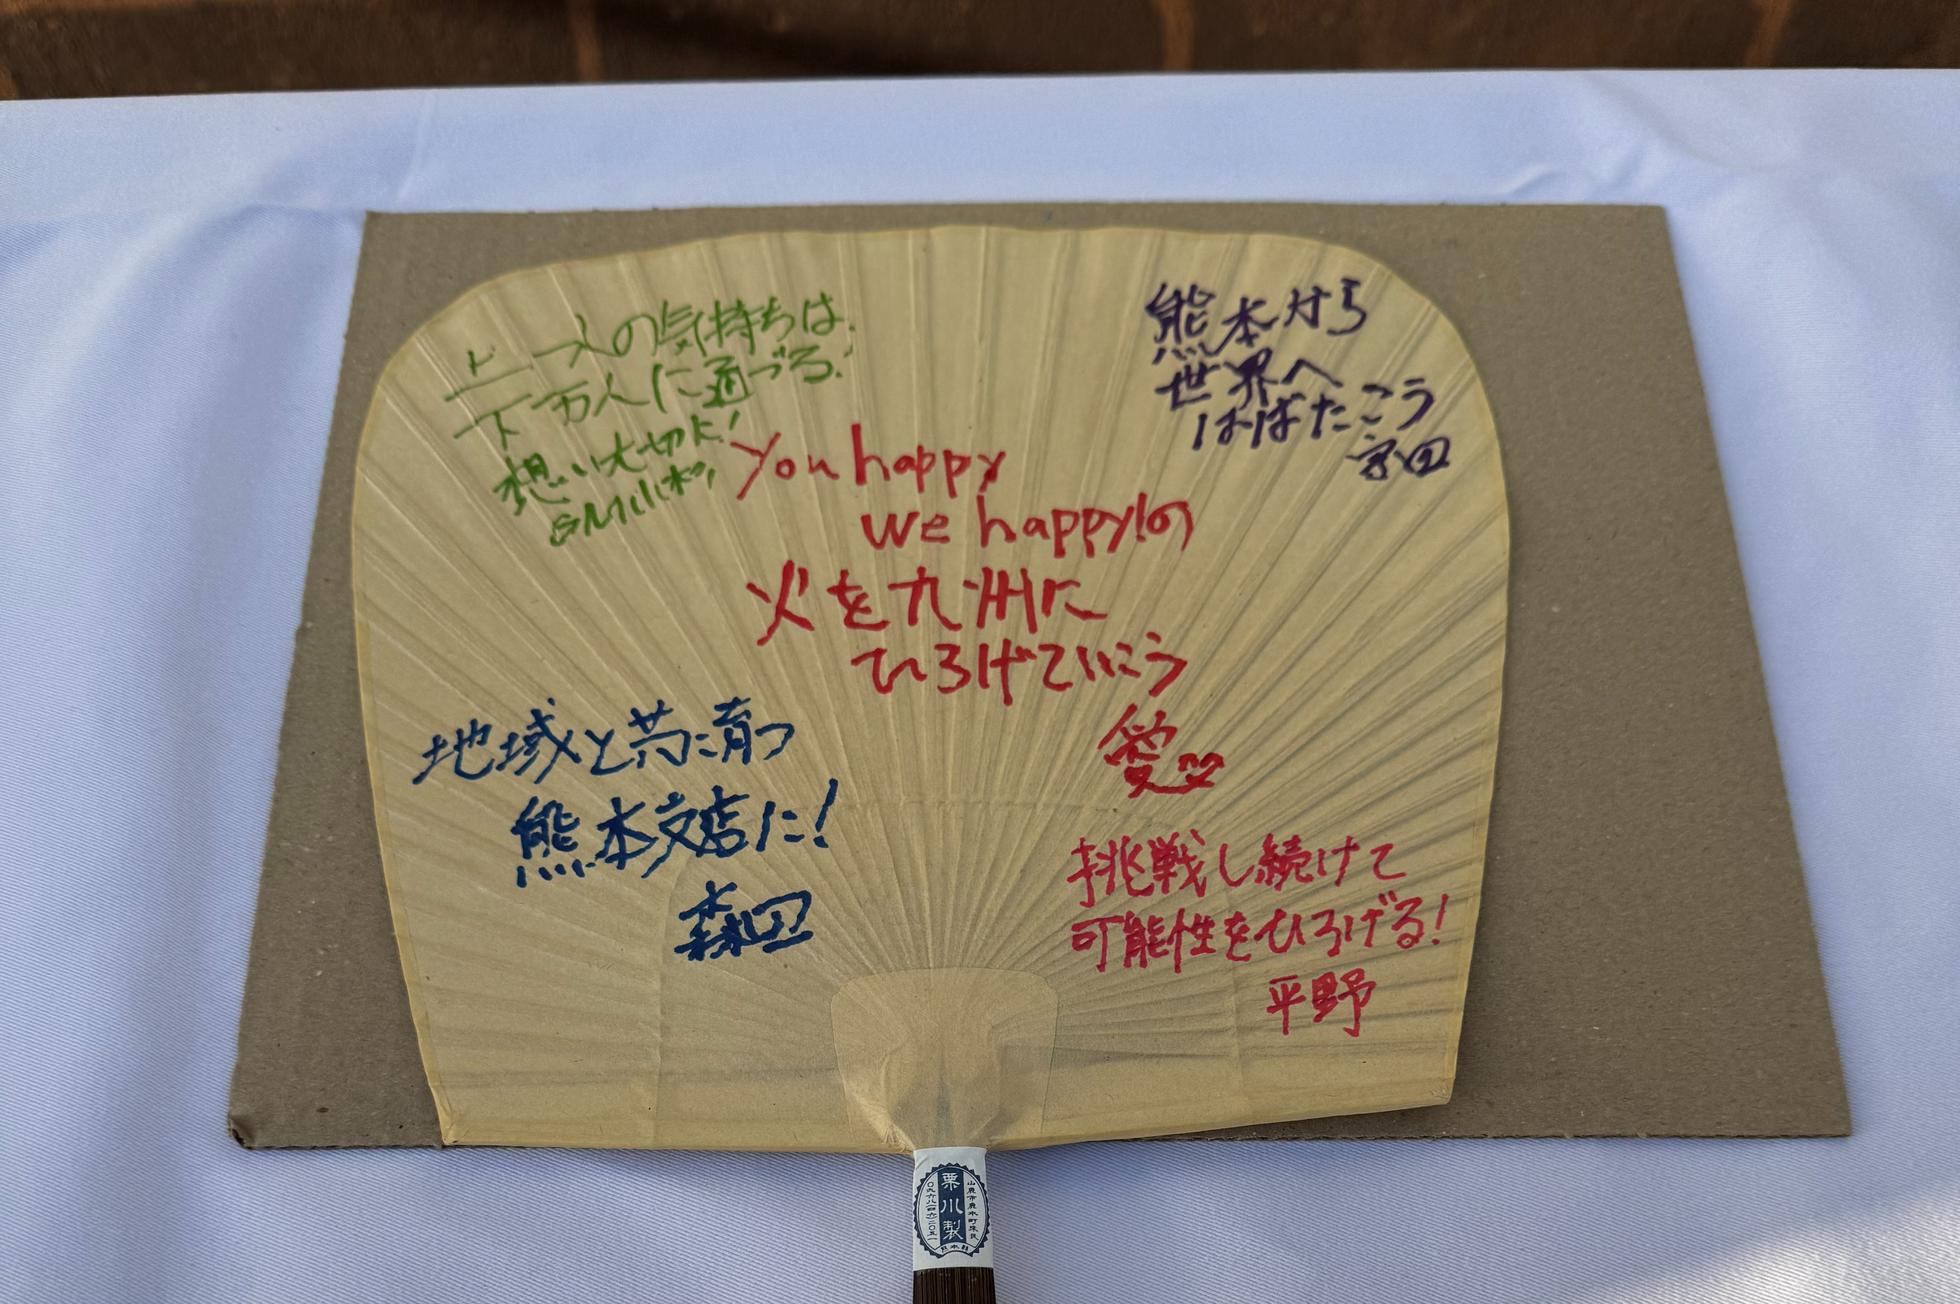 一人の気持ちは
万人に通づる!
想い大切に!
熊本から
世界へ
はばたこう
You happy
we happy!の
火を九州に
ひろげていこう
愛
地域と共に育つ
熊本支店に!
森田
挑戦し続けて
可能性をひろげる!
平野
栗川製
山鹿市鹿本町来民
〇九六八(四六)二〇五一